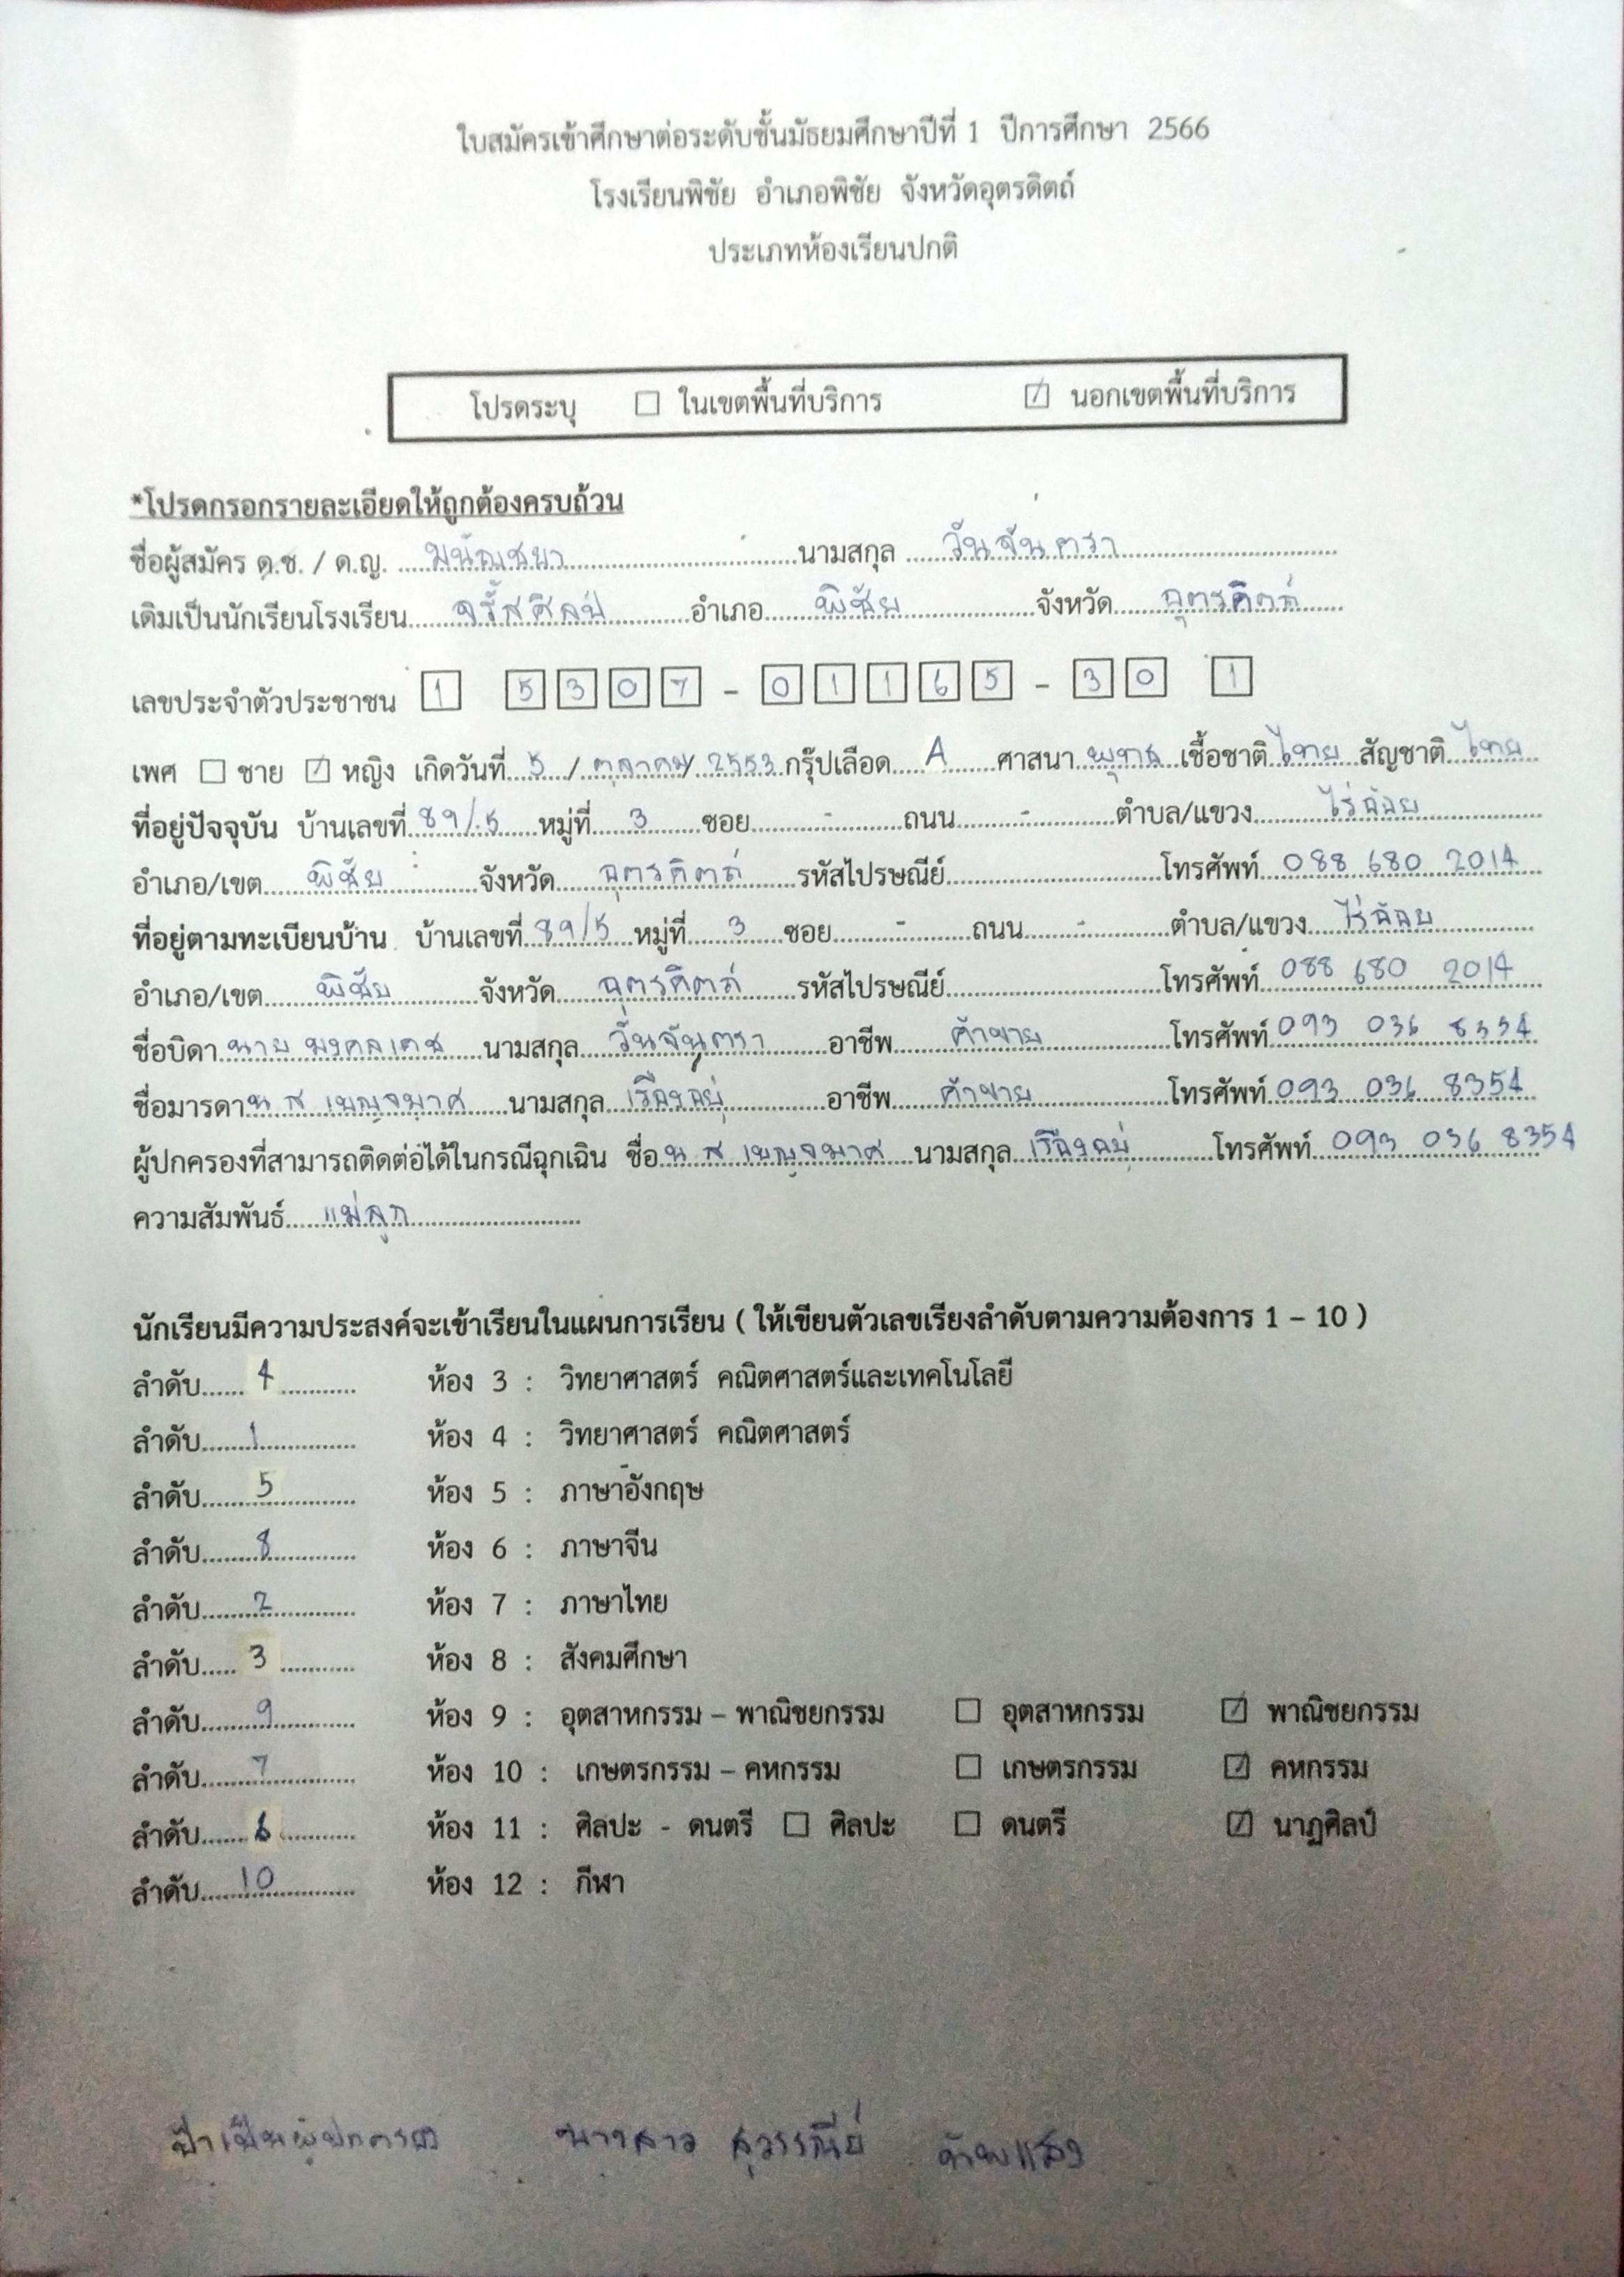 ใบสมัครเข้าศึกษาต่อระดับชั้นมัธยมศึกษาปีที่ 1 ปีการศึกษา 2566
โรงเรียนพิชัย อำเภอพิชัย จังหวัดอุตรดิตถ์
ประเภทห้องเรียนปกติ
โปรดระบุ ☐ ในเขตพื้นที่บริการ ☑ นอกเขตพื้นที่บริการ
*โปรดกรอกรายละเอียดให้ถูกต้องครบถ้วน
ชื่อผู้สมัคร ด.ช. / ด.ญ. มนัญชยา นามสกุล วันจันตรา
เดิมเป็นนักเรียนโรงเรียน จรัสศิลป์ อำเภอ พิชัย จังหวัด อุตรดิตถ์
เลขประจำตัวประชาชน 1 5307 - 01165 - 30 1
เพศ ☐ ชาย ☑ หญิง เกิดวันที่ 5 / ตุลาคม / 2553 กรุ๊ปเลือด A ศาสนา พุทธ เชื้อชาติ ไทย สัญชาติ ไทย
ที่อยู่ปัจจุบัน บ้านเลขที่ 89/5 หมู่ที่ 3 ซอย - ถนน - ตำบล/แขวง ไร่อ้อย
อำเภอ/เขต พิชัย จังหวัด อุตรดิตถ์ รหัสไปรษณีย์ โทรศัพท์ 088 680 2014
ที่อยู่ตามทะเบียนบ้าน บ้านเลขที่ 89/5 หมู่ที่ 3 ซอย - ถนน - ตำบล/แขวง ไร่อ้อย
อำเภอ/เขต พิชัย จังหวัด อุตรดิตถ์ รหัสไปรษณีย์ โทรศัพท์ 088 680 2014
ชื่อบิดา นาย มงคลเดช นามสกุล วันจันตรา อาชีพ ค้าขาย โทรศัพท์ 093 036 8354
ชื่อมารดา น ส เบญจมาศ นามสกุล เรืองอยู่ อาชีพ ค้าขาย โทรศัพท์ 093 036 8354
ผู้ปกครองที่สามารถติดต่อได้ในกรณีฉุกเฉิน ชื่อ น ส เบญจมาศ นามสกุล เรืองอยู่ โทรศัพท์ 093 036 8354
ความสัมพันธ์ แม่ลูก
นักเรียนมีความประสงค์จะเข้าเรียนในแผนการเรียน ( ให้เขียนตัวเลขเรียงลำดับตามความต้องการ 1 – 10 )
ลำดับ 4 ห้อง 3 : วิทยาศาสตร์ คณิตศาสตร์และเทคโนโลยี
ลำดับ 1 ห้อง 4 : วิทยาศาสตร์ คณิตศาสตร์
ลำดับ 5 ห้อง 5 : ภาษาอังกฤษ
ลำดับ 8 ห้อง 6 : ภาษาจีน
ลำดับ 2 ห้อง 7 : ภาษาไทย
ลำดับ 3 ห้อง 8 : สังคมศึกษา
ลำดับ 9 ห้อง 9 : อุตสาหกรรม – พาณิชยกรรม ☐ อุตสาหกรรม ☑ พาณิชยกรรม
ลำดับ 7 ห้อง 10 : เกษตรกรรม – คหกรรม ☐ เกษตรกรรม ☑ คหกรรม
ลำดับ 6 ห้อง 11 : ศิลปะ - ดนตรี ☐ ศิลปะ ☐ ดนตรี ☑ นาฏศิลป์
ลำดับ 10 ห้อง 12 : กีฬา
ป้าเป็นผู้ปกครอง นางสาว สุวรรณีย์